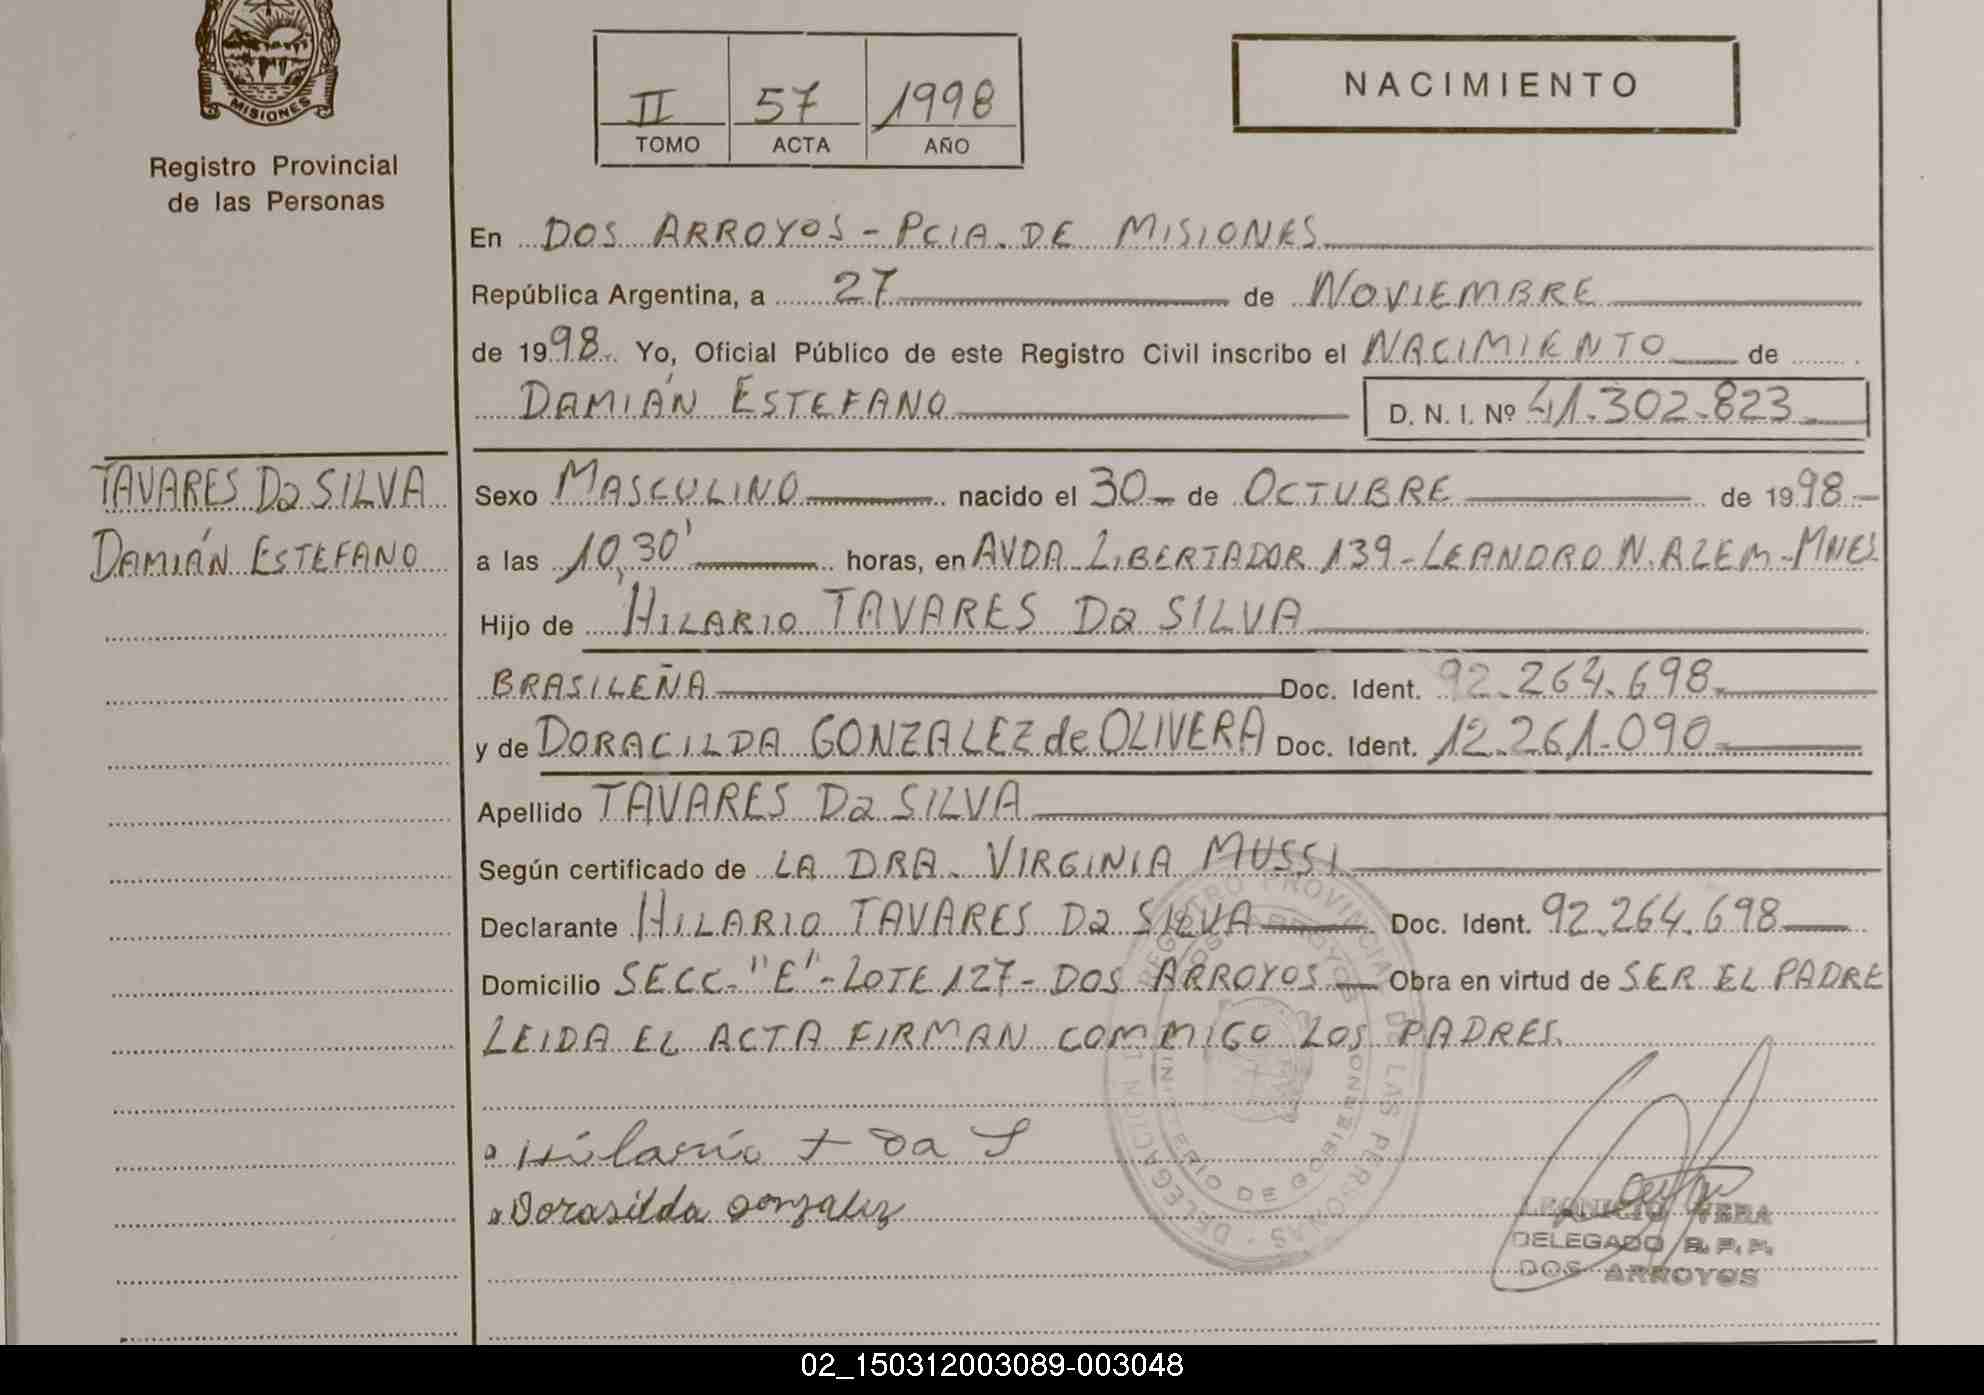 MISIONES
Registro Provincial
de las Personas
II 57 1998
TOMO ACTA AÑO
NACIMIENTO
En DOS ARROYOS - PCIA. DE MISIONES
República Argentina, a 27 de NOVIEMBRE
de 1998 Yo, Oficial Público de este Registro Civil inscribo el NACIMIENTO de
DAMIÁN ESTEFANO D. N. I. Nº 41.302.823
TAVARES Da SILVA
DAMIÁN ESTEFANO
Sexo MASCULINO nacido el 30 de OCTUBRE de 1998
a las 10,30' horas, en AVDA. LIBERTADOR 139 - LEANDRO N. ALEM - MNES
Hijo de HILARIO TAVARES Da SILVA
BRASILEÑA Doc. Ident. 92.264.698
y de DORACILDA GONZALEZ de OLIVERA Doc. Ident. 12.261.090
Apellido TAVARES Da SILVA
Según certificado de LA DRA. VIRGINIA MUSSI
Declarante HILARIO TAVARES Da SILVA Doc. Ident. 92.264.698
Domicilio SECC. "E" - LOTE 127 - DOS ARROYOS Obra en virtud de SER EL PADRE
LEIDA EL ACTA FIRMAN COMMIGO LOS PADRES.
REGISTRO PROVINCIAL DE LAS PERSONAS · DELEGACION
DOS ARROYOS
MINISTERIO DE GOBIERNO
Hilario t da S
Dorasilda gonzalez
LEONICIO VERA
DELEGADO R. P. P.
DOS ARROYOS
02_150312003089-003048